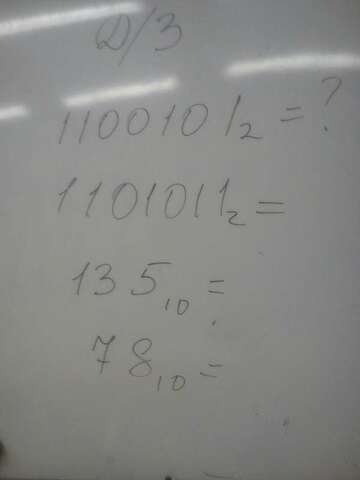 Д/З
1100101₂ = ?
11010111₂ =
135₁₀ =
78₁₀ =